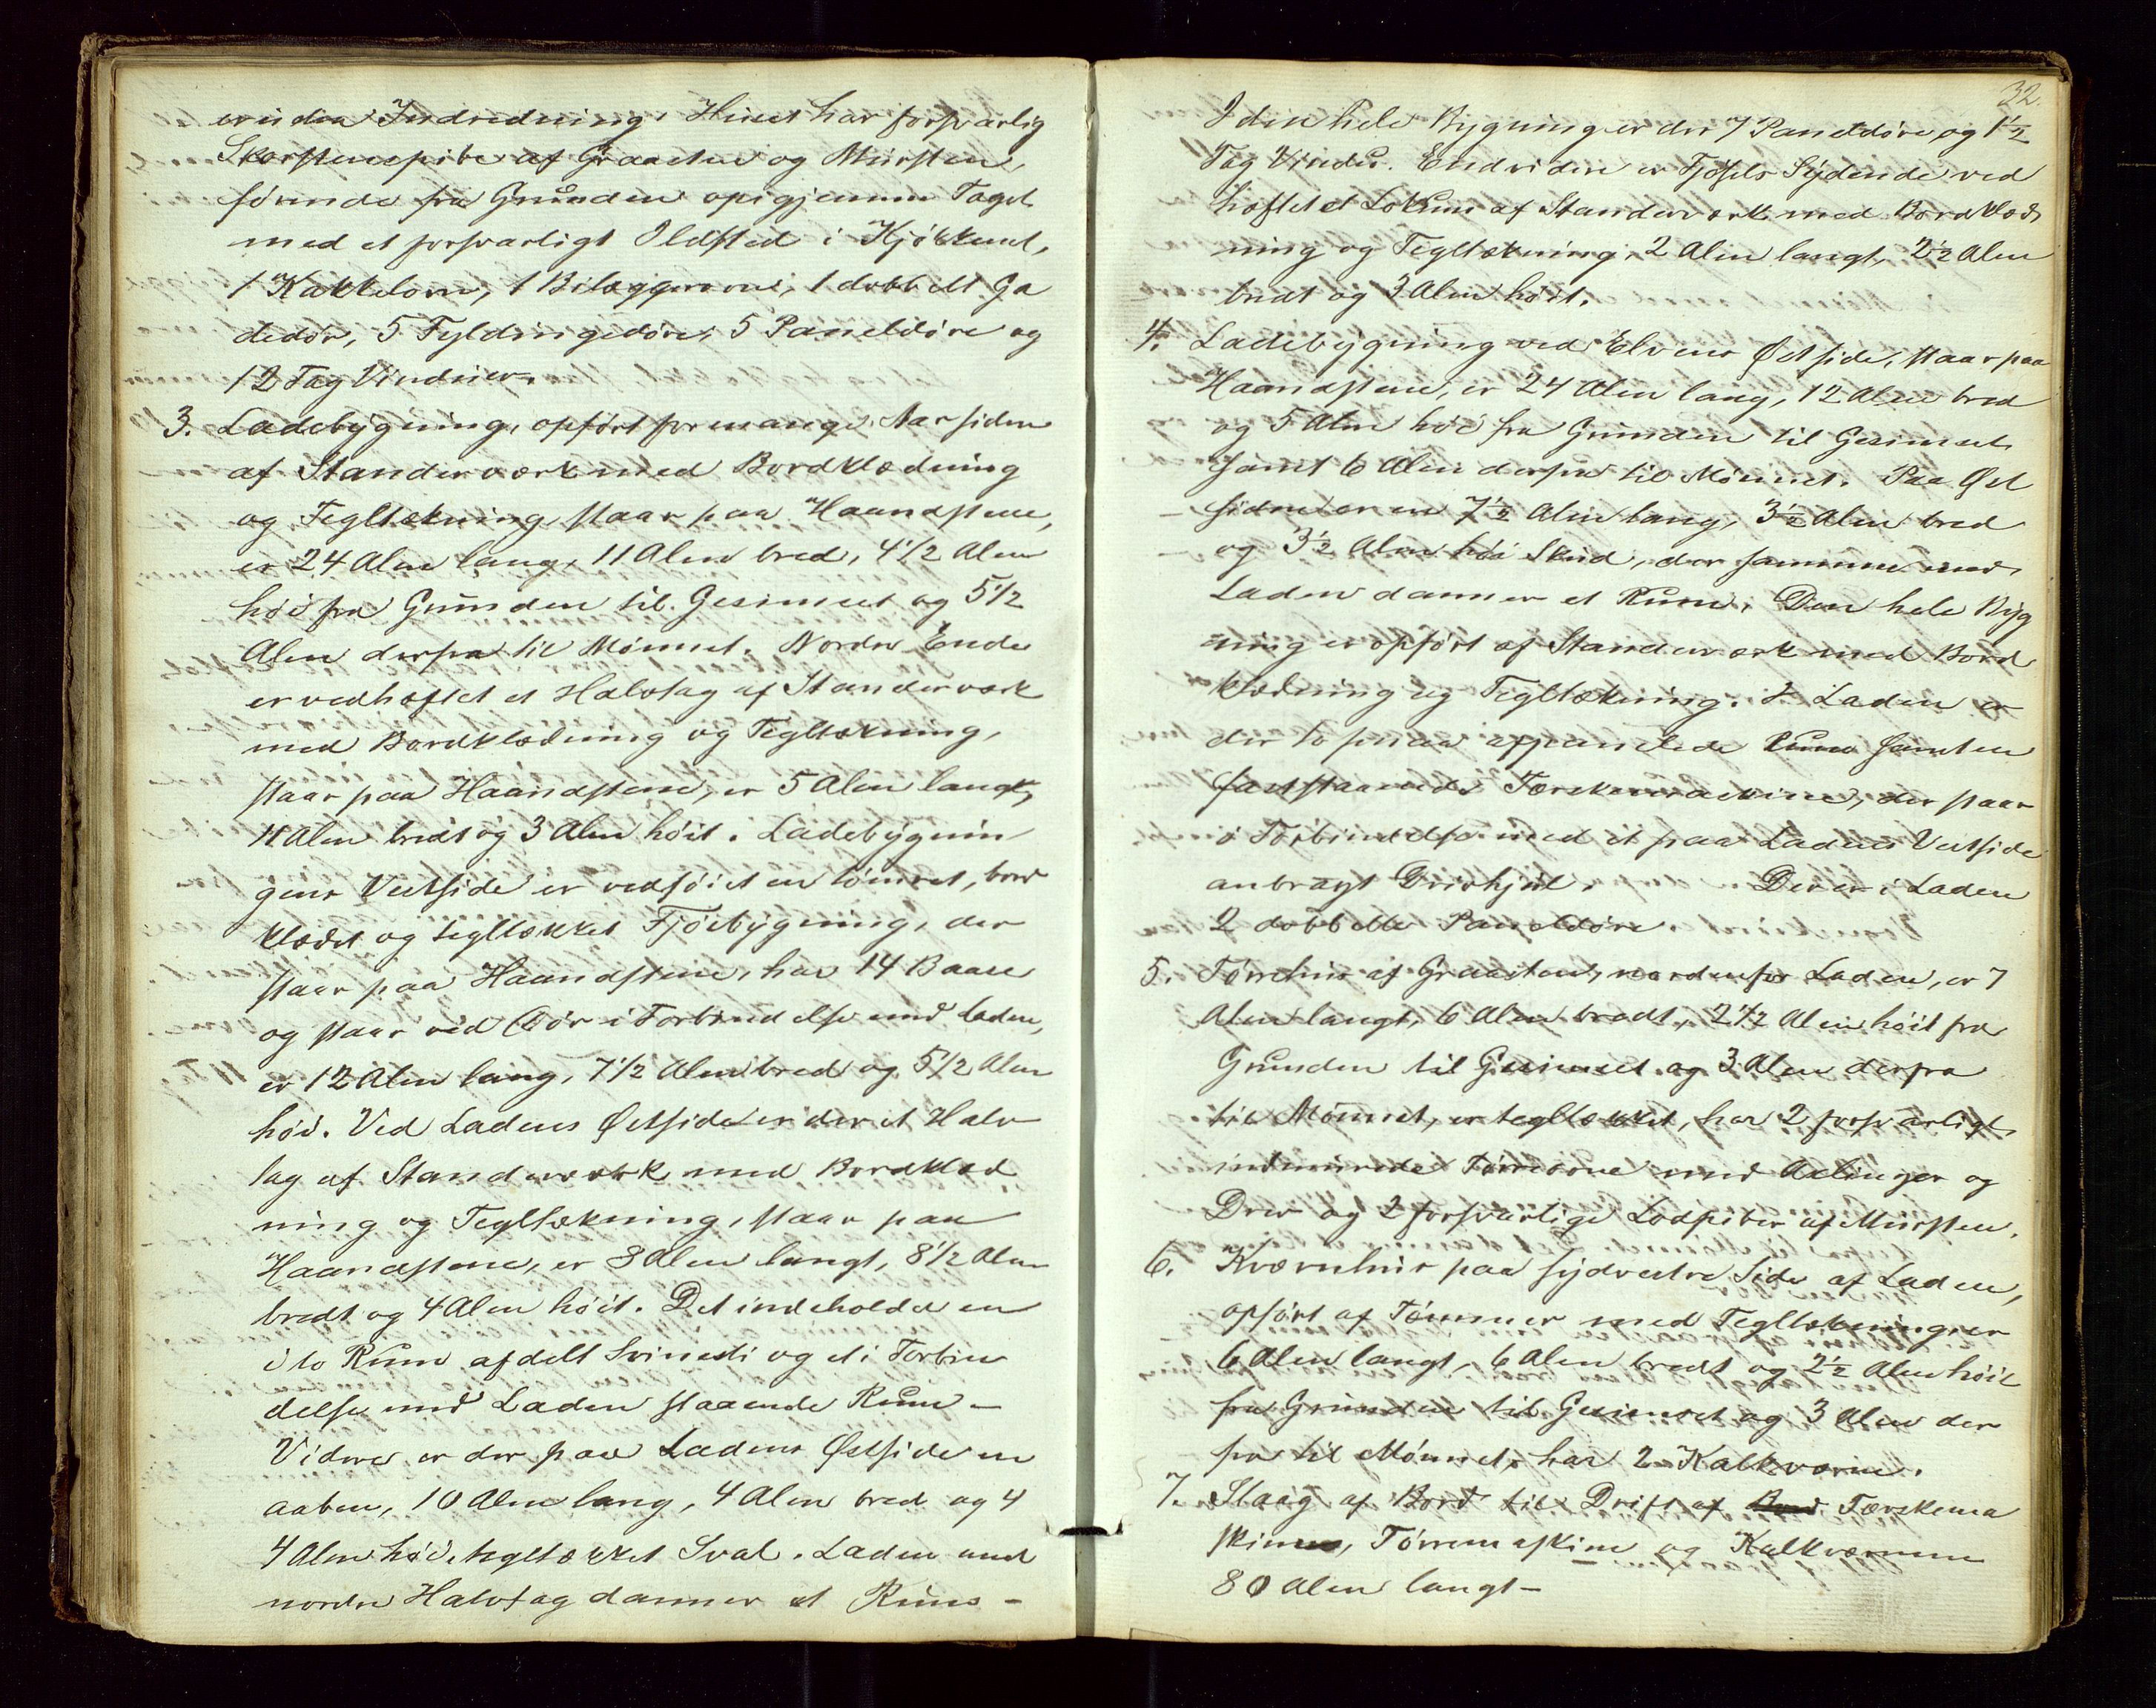 er uden Indredning. Huset har forsvarlig
Skorstenspibe af Graasten og Mursten
førende fra Grunden op igjennem Taget
med et forsvarligt Ildsted i Kjøkkenet,
1 Kakkelovn, 1 Bilæggerovn, 1 dobbelt Ga
dedør, 5 Fyldingsdøre, 5 Paneldøre og
12 Fag Vinduer.
3. Ladebygning, opført for mange Aar siden
af Standerværk med Bordklædning
og Tegltækning, staar paa Haandstene,
er 24 Alen lang, 11 Alen bred, 4 1/2 Alen
høi fra Grunden til Gesimset og 5 1/2
Alen derfra til Mønnet. Nordre Ende
er vedhæftet et Halvtag af Standerværk
med Bordklædning og Tegltækning,
staar paa Haandstene, er 5 Alen langt,
11 Alen bredt og 3 Alen høit. Ladebygnin
gens Vestside er vedføiet en tømret, bord
klædt og tegltækket Fjøsbygning, der
staar paa Haandstene, har 14 Baase
og staar ved Dør i Forbindelse med Laden,
er 12 Alen lang, 7 1/2 Alen bred og 5 1/2 Alen
høi. Ved Ladens Østside er der et Halv
tag af Standerværk med Bordklæd
ning og Tegltækning, staar paa
Haandstene, er 8 Alen langt, 8 1/2 Alen
bredt og 4 Alen høit. Det indeholder en
i to Rum afdelt Svinesti og et i Forbin
delse med Laden staaende Rum –
Videre er der paa Ladens Østside en
aaben, 10 Alen lang, 4 Alen bred og 4
4 Alen høi tegltækket Sval. Laden med
nordre Halvtag danner et Rum –
32.
I den hele Bygning er der 7 Paneldøre og 1 1/2
Fag Vindu. Endvidere er Fjøsets Sydende ved
hæftet et Lokum af Standerværk med Bordklæd
ning og Tegltækning, 2 Alen langt, 2 1/2 Alen
bredt og 3 Alen høit.
4. Ladebygning ved Elvens Østside, staar paa
Haandstene, er 24 Alen lang, 12 Alen bred
og 5 Alen høi fra Grunden til Gesimset
samt 6 Alen derfra til Mønnet. Paa Øst
siden er en 7 1/2 Alen lang, 3 1/2 Alen bred
og 3 1/2 Alen høi Skud, der sammen med
Laden danner et Rum. Den hele Byg
ning er opført af Standerværk med Bord
klædning og Tegltækning. I Laden er
der to smaa afpanelede Rum samt en
faststaaende Tærskemaskine, der staar
i Forbindelse med et paa Ladens Vestside
anbragt Drivhjul. Der er i Laden
2 dobbelte Paneldøre.
5. Tørrehus af Graasten, nordenfor Laden, er 7
Alen langt, 6 Alen bredt, 2 1/2 Alen høit fra
Grunden til Gesimset og 3 Alen derfra
til Mønnet, er tegltækket, har 2 forsvarligt
indmurede Tørreovne med Axlinger og
Drev og 2 forsvarlige Lodpiber af Mursten.
6. Kværnhus paa sydvestre Side af Laden,
opført af Tømmer med Tegltækning, er
6 Alen langt, 6 Alen bredt og 2 1/2 Alen høit
fra Grunden til Gesimset og 3 Alen der
fra til Mønnet, har 2 Kalkværne.
7. Slaag af Bord til Drift af Bord Tærskema
skinen, Tørremaskine og Kalkværnene
80 Alen langt –